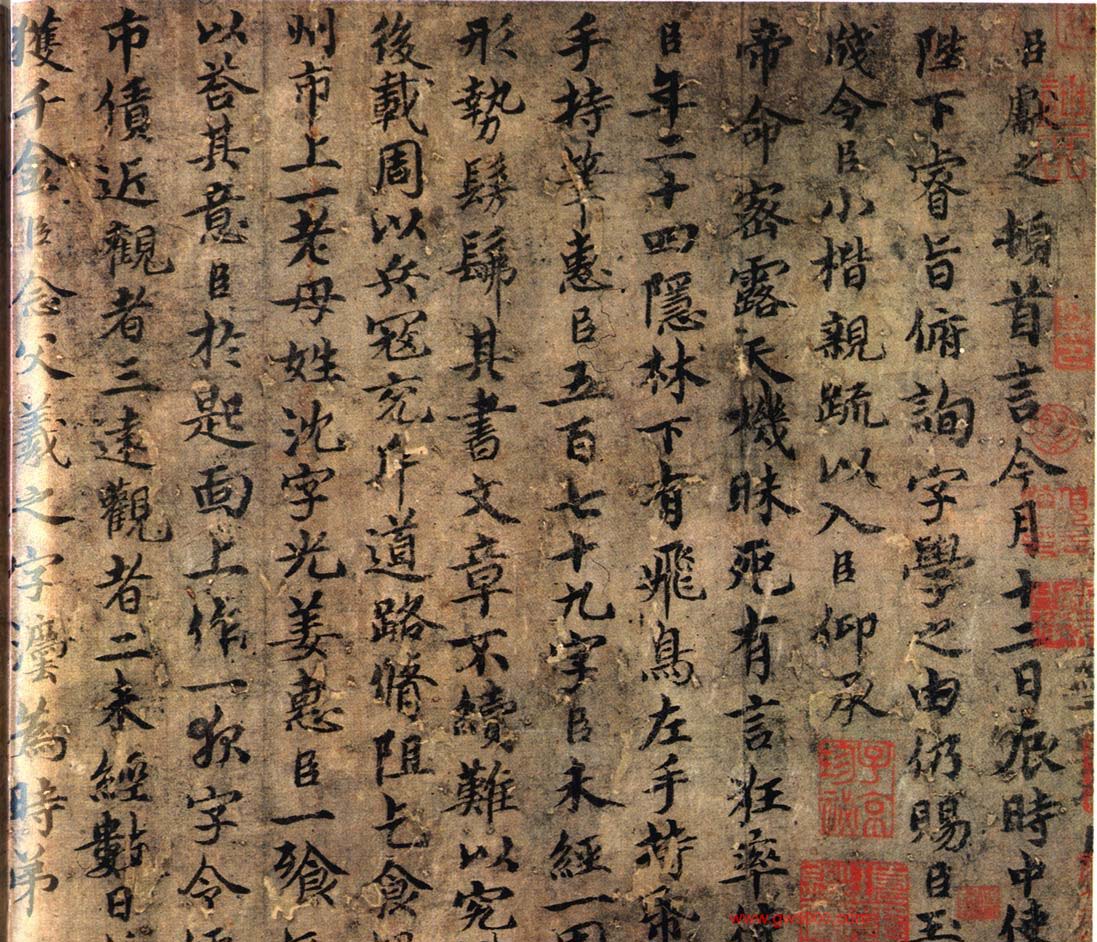 臣獻之頓首言今月十三日辰時中使
陛下睿旨俯詢字學之由仍賜臣玉
成今臣小楷親疏以入臣仰承
帝命密露天機昧死有言狂率
臣年二十四隱林下有飛鳥左手持帋
手持筆惠臣五百七十九字臣未經一周
形勢髣髴其書文章不續難以究
後載周以兵寇充斥道路脩阻乞食
州市上一老母姓沈字光姜惠臣一飡
以荅其意臣於匙面上作一夜字令
市價近觀者三遠觀者二未經數日
獲千金念父羲之字法為時第